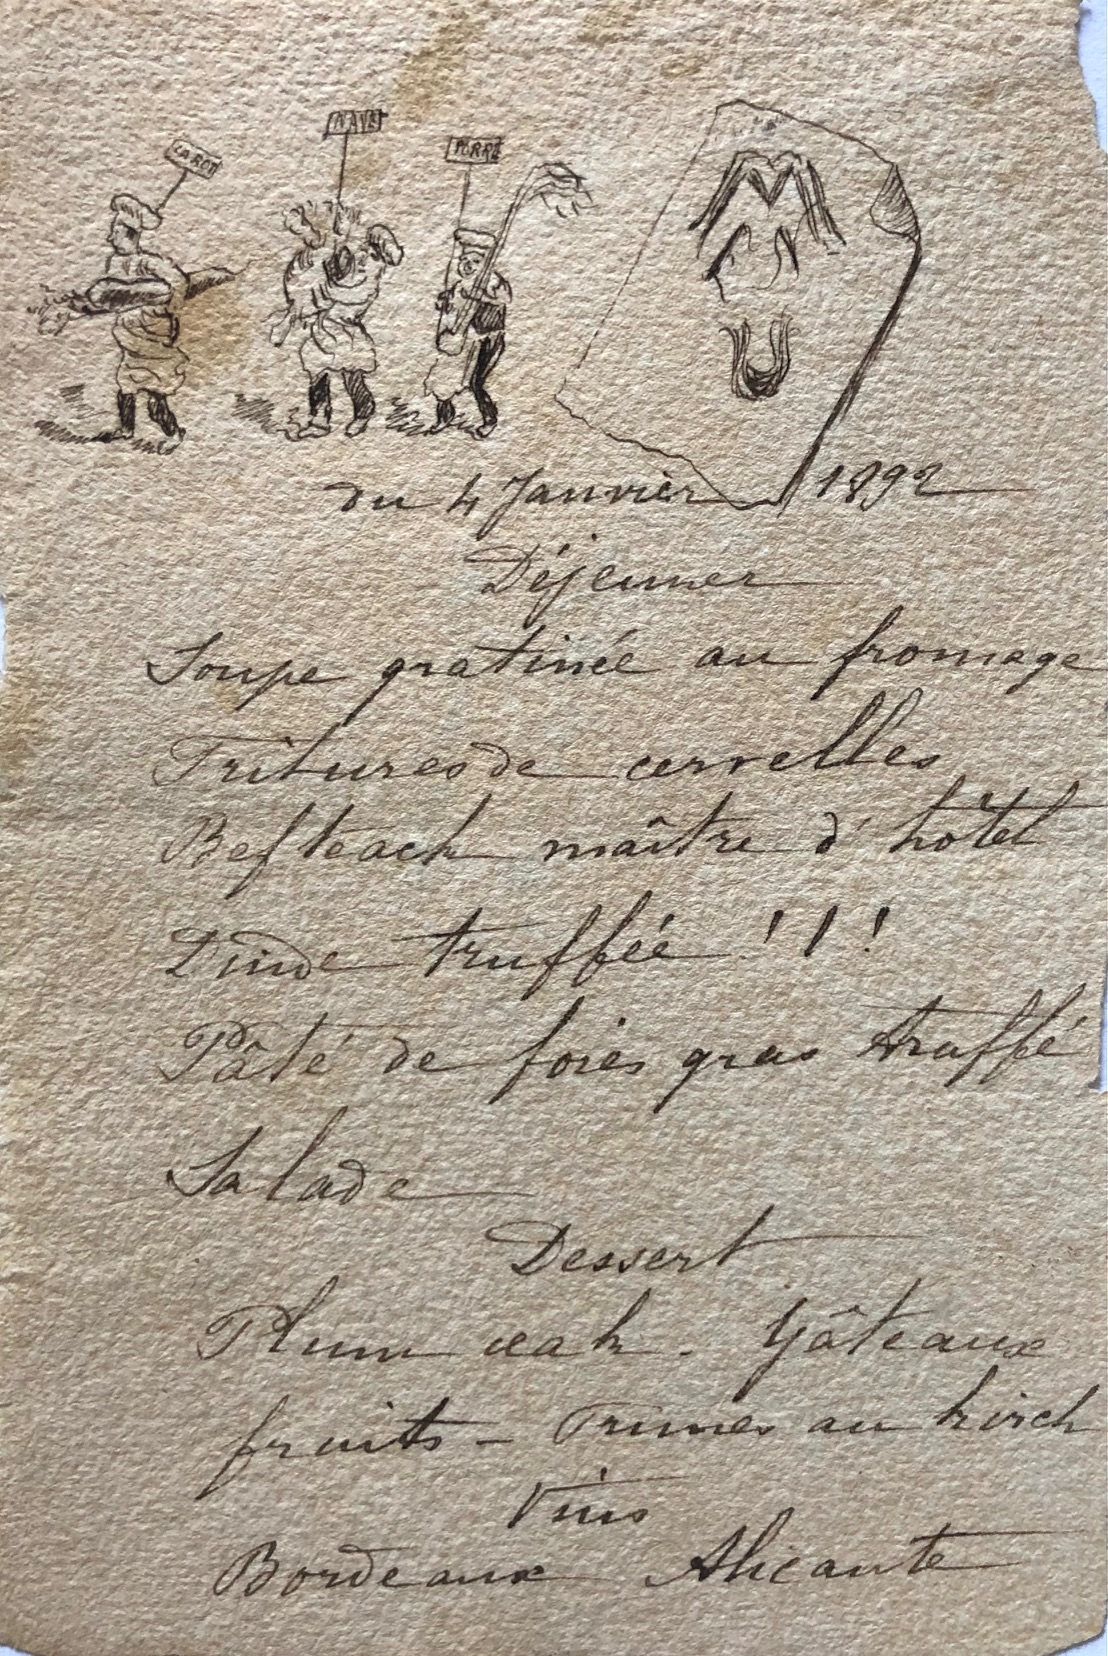 CAROT
NAVET
PORRE
du 4 Janvier 1892
Déjeuner
Soupe gratinée au fromage
Fritures de cervelles
Befteack maître d'hôtel
Dinde truffée !!!
Pâté de foies gras truffé
Salade
Dessert
Plum ceak - Gâteaux
fruits - Prunes au kirch
Vins
Bordeaux Alicante